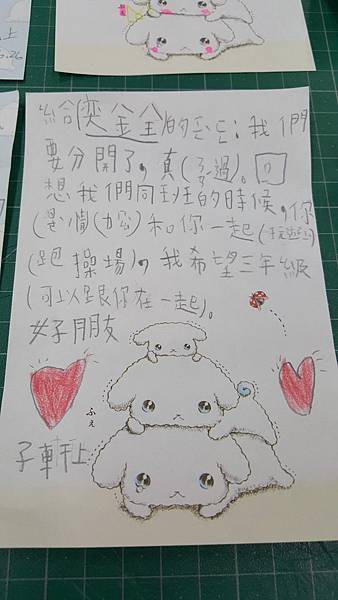 上
給 金 的 我們
要分開了,真( 過)。回
想我們同班的時候,你
和你一起
(跑操場),我希望三年級
(可以跟你在一起)。
好朋友
ふぇ
子軒上